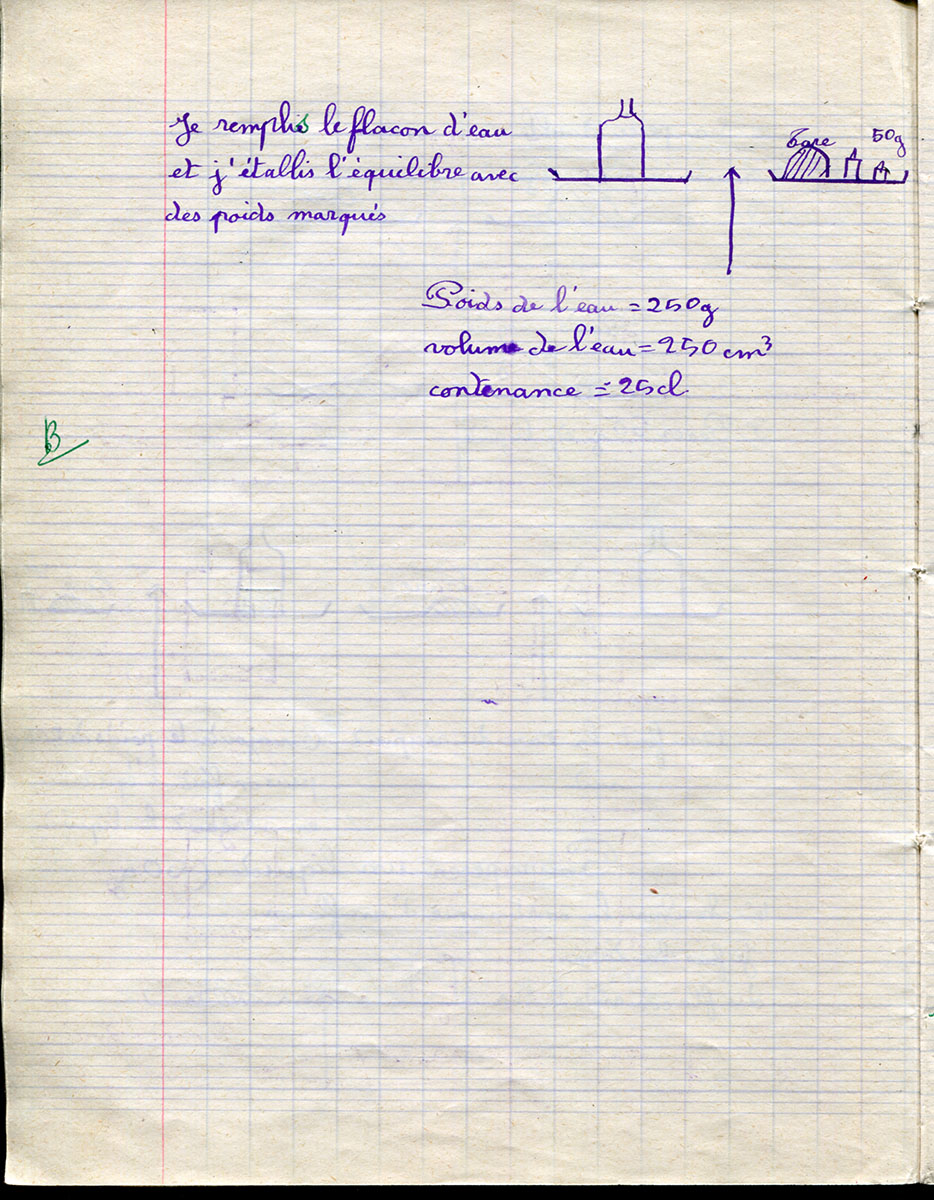 Je remplis le flacon d'eau
et j'établis l'équilibre avec
des poids marqués
Tare 50g
Poids de l'eau = 250g
volume de l'eau = 250 cm³
contenance = 25cl
B